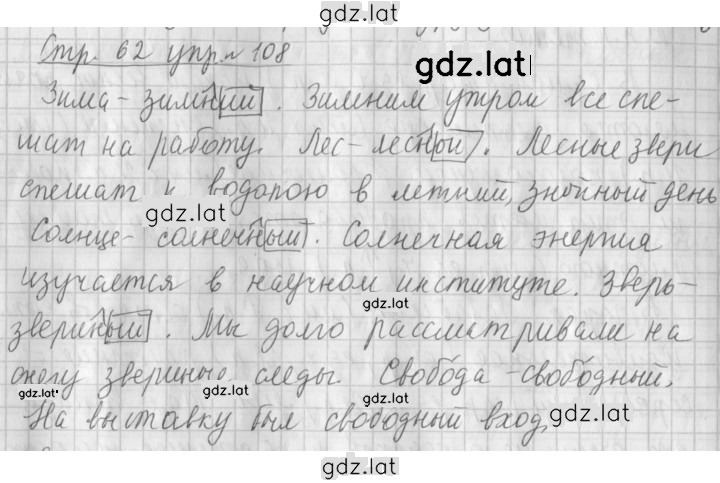 gdz.lat
Стр. 62 упр. 108
gdz.lat
Зима - зимний. Зимним утром все спе-
шат на работу. Лес - лесной. Лесные звери
спешат к водопою в летний, знойный день
gdz.lat
Солнце - солнечный. Солнечная энергия
изучается в научном институте. Зверь-
gdz.lat
звериный. Мы долго рассматривали на
снегу звериные следы. Свобода - свободный.
gdz.lat
gdz.lat
На выставку был свободный вход.
gdz.lat
gdz.lat